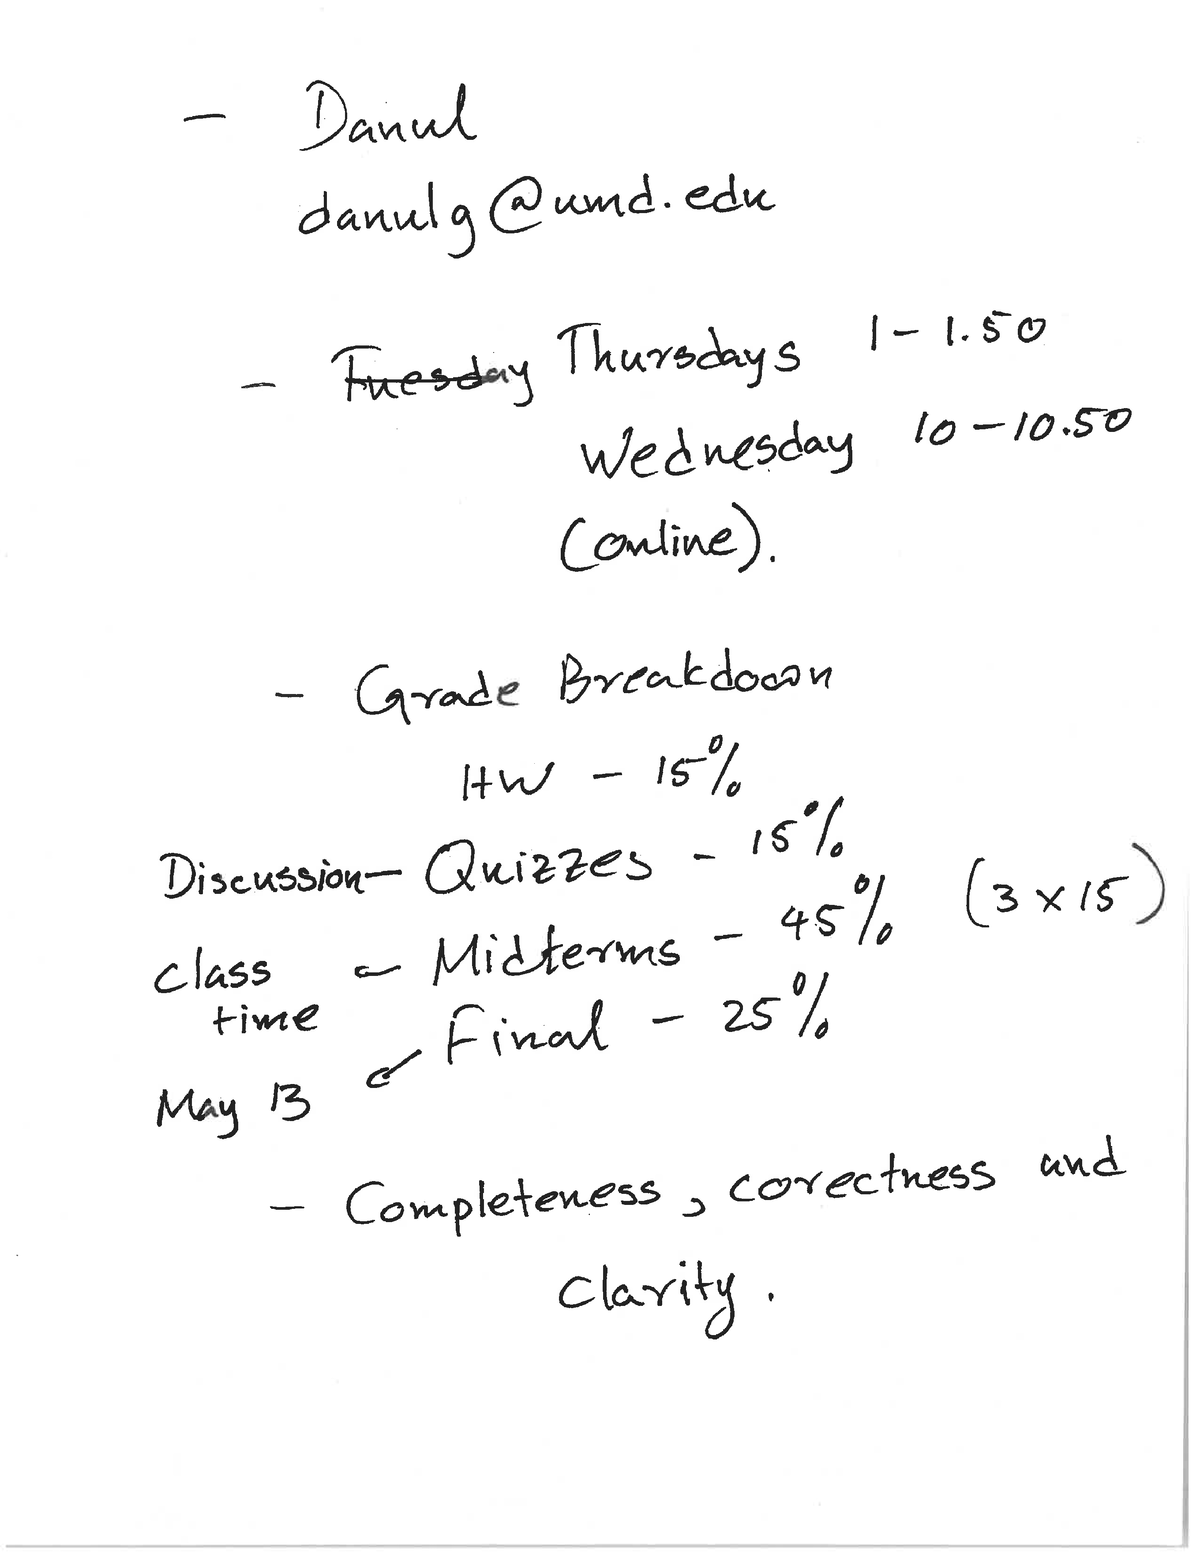 - Danul
danulg@umd.edu
- Tuesday Thursdays 1 - 1.50
Wednesday 10 - 10.50
(online).
- Grade Breakdown
HW - 15%
Discussion - Quizzes - 15%
class time - Midterms - 45% (3 x 15)
Final - 25%
May 13
- Completeness, corectness and
clarity.